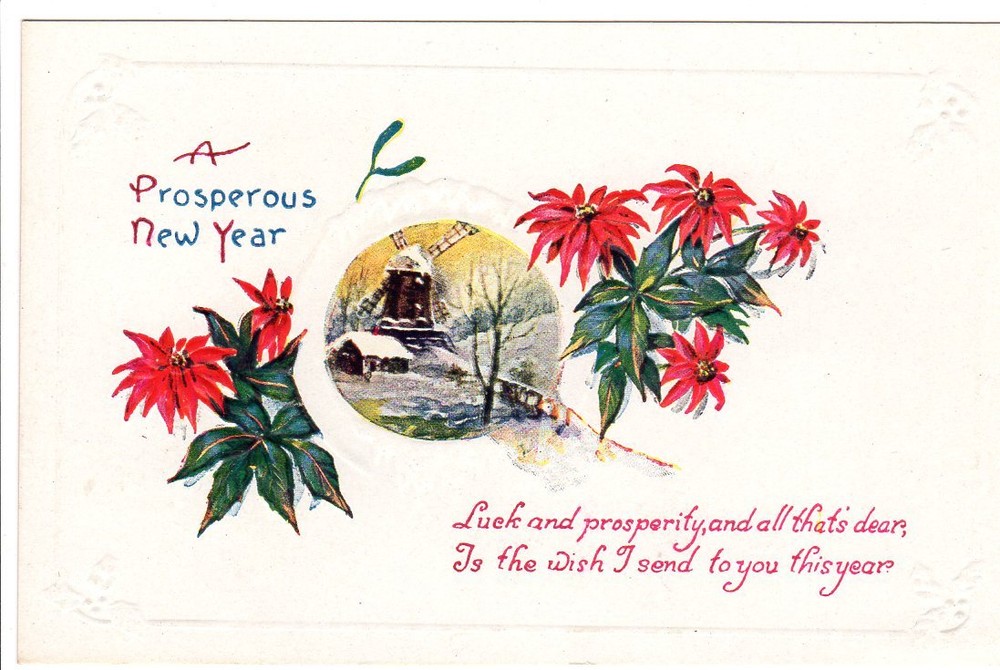 A
Prosperous
New Year
Luck and prosperity, and all that's dear,
Is the wish I send to you this year.